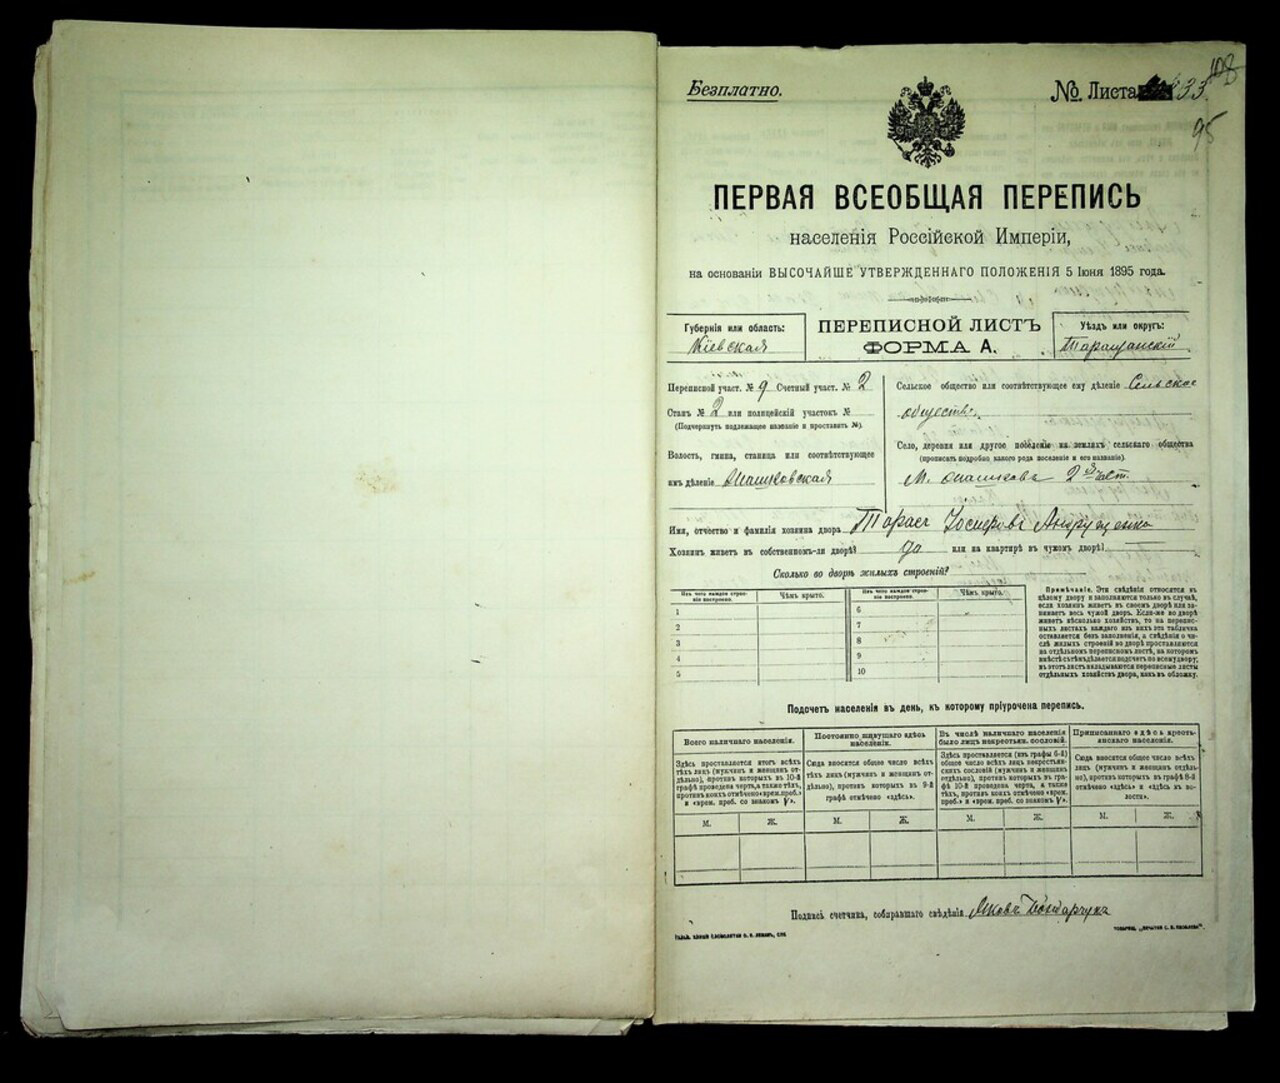 Безплатно.
№ Листа 33.
108
95
ПЕРВАЯ ВСЕОБЩАЯ ПЕРЕПИСЬ
населенія Россійской Имперіи,
на основаніи ВЫСОЧАЙШЕ УТВЕРЖДЕННАГО ПОЛОЖЕНІЯ 5 Іюня 1895 года.
Губернія или область:
Кіевская
ПЕРЕПИСНОЙ ЛИСТЪ
ФОРМА А.
Уѣздъ или округъ:
Таращанскій
Переписной участ. № 9 Счетный участ. № 2
Станъ № 2 или полицейскій участокъ №
(Подчеркнуть надлежащее названіе и проставить №).
Волость, гмина, станица или соотвѣтствующее
имъ дѣленіе
Сельское общество или соотвѣтствующее ему дѣленіе Сельское
общество.
Село, деревня или другое поселеніе на земляхъ сельскаго общества
(прописать подробно какого рода поселеніе и его названіе).
М. 2
Имя, отчество и фамилія хозяина двора Тарасъ Іосифовъ Андрущенко
Хозяинъ живетъ въ собственномъ-ли дворѣ? да или на квартирѣ въ чужомъ дворѣ?
Сколько во дворѣ жилыхъ строеній?
Изъ чего каждое строеніе построено. Чѣмъ крыто. Изъ чего каждое строеніе построено. Чѣмъ крыто.
1 6
2 7
3 8
4 9
5 10
Примѣчаніе. Эти свѣдѣнія относятся къ
цѣлому двору и заполняются только въ случаѣ,
если хозяинъ живетъ въ своемъ дворѣ или занимаетъ
весь чужой дворъ. Если-же во дворѣ
живетъ нѣсколько хозяйствъ, то на переписныхъ
листахъ каждаго изъ нихъ эта табличка
оставляется безъ заполненія, а свѣдѣнія о числѣ
жилыхъ строеній во дворѣ проставляются
на отдѣльномъ переписномъ листѣ, на которомъ
вмѣстѣ съ тѣмъ дѣлается подсчетъ по всему двору;
въ этотъ листъ вкладываются переписные листы
отдѣльныхъ хозяйствъ двора, какъ въ обложку.
Подсчетъ населенія въ день, къ которому пріурочена перепись.
Всего наличнаго населенія.
Здѣсь проставляется итогъ всѣхъ
тѣхъ лицъ (мужчинъ и женщинъ отдѣльно),
противъ которыхъ въ 10-й
графѣ проведена черта, а также тѣхъ,
противъ коихъ отмѣчено «врем. преб.»
и «врем. преб. со знакомъ V».
Постоянно живущаго здѣсь
населенія.
Сюда вносится общее число всѣхъ
тѣхъ лицъ (мужчинъ и женщинъ отдѣльно),
противъ которыхъ въ 9-й
графѣ отмѣчено «здѣсь».
Въ числѣ наличнаго населенія
было лицъ некрестьян. сословій.
Здѣсь проставляется (изъ графы 6-й)
общее число всѣхъ лицъ некрестьянскихъ
сословій (мужчинъ и женщинъ
отдѣльно), противъ которыхъ въ графѣ
10-й проведена черта, а также
тѣхъ, противъ коихъ отмѣчено «врем.
преб.» и «врем. преб. со знакомъ V».
Приписаннаго здѣсь крестьянскаго
населенія.
Сюда вносится общее число всѣхъ
лицъ (мужчинъ и женщинъ отдѣльно),
противъ которыхъ въ графѣ 8-й
отмѣчено «здѣсь» и «здѣсь въ волости».
М. Ж. М. Ж. М. Ж. М. Ж.
Подпись счетчика, собиравшаго свѣдѣнія Яковъ Бондарчукъ